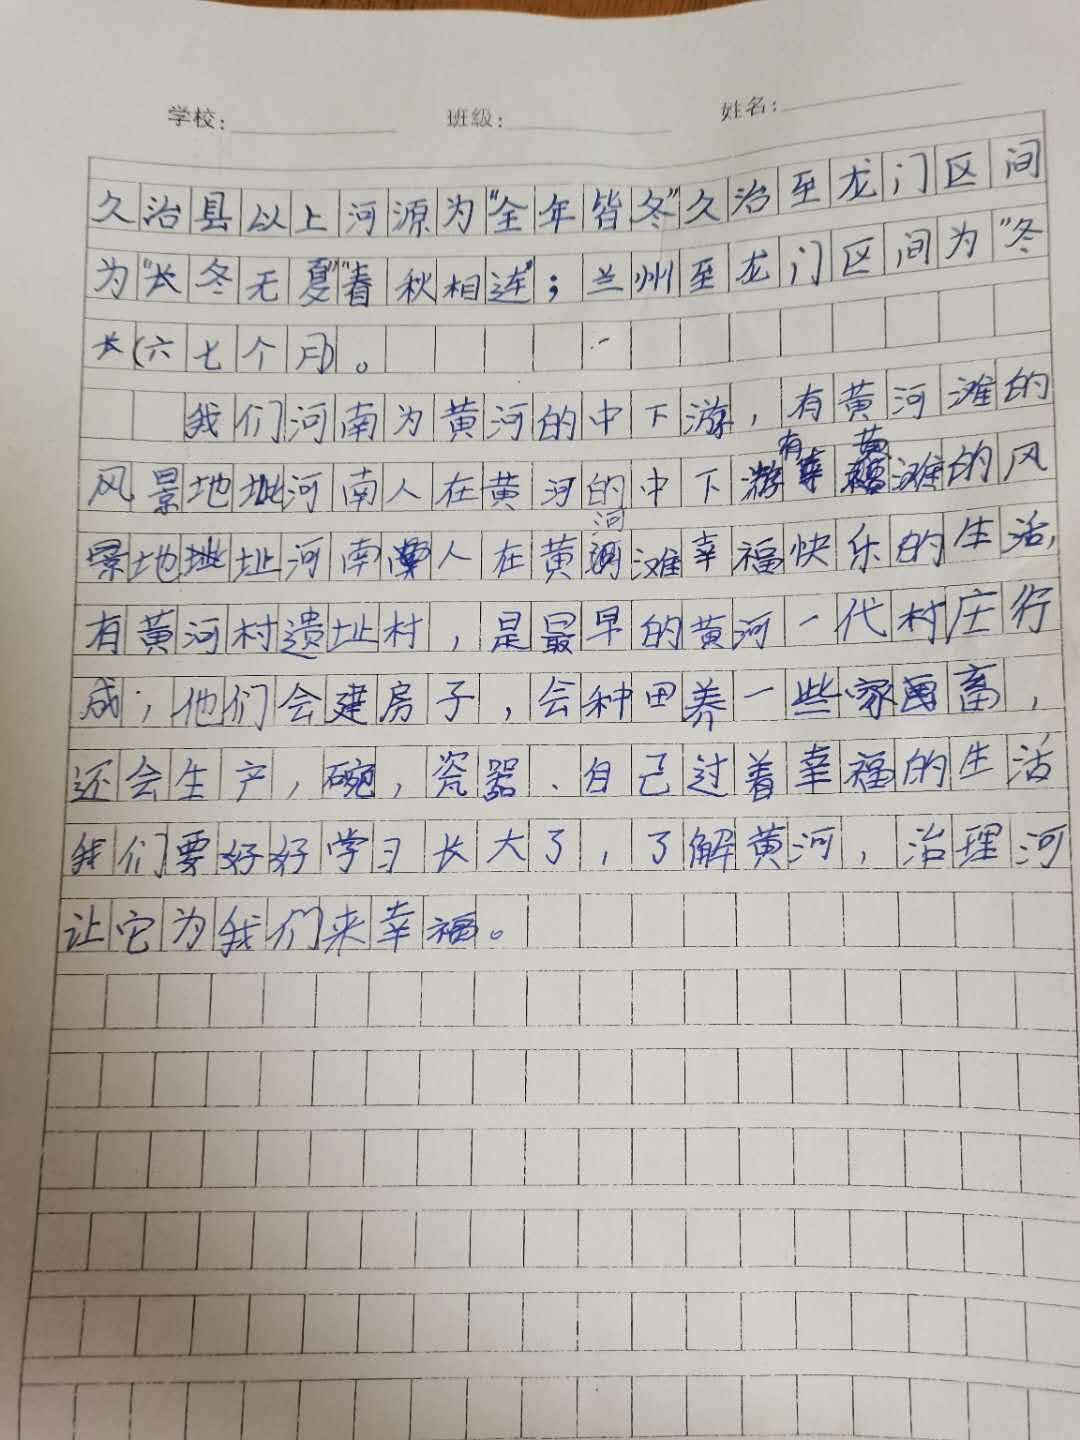 学校: 班级: 姓名:
久治县以上河源为"全年皆冬"久治至龙门区间
为"长冬无夏""春秋相连"；兰州至龙门区间为"冬
长(六七个月)。
我们河南为黄河的中下游，有黄河滩的
风景地址河南人在黄河的中下游有黄滩的风
景地址址河南人在黄河滩幸福快乐的生活,
有黄河村遗址村，是最早的黄河一代村庄行
成，他们会建房子，会种田养一些家畜，
还会生产，碗，瓷器、自己过着幸福的生活
我们要好好学习长大了，了解黄河，治理河
让它为我们来幸福。